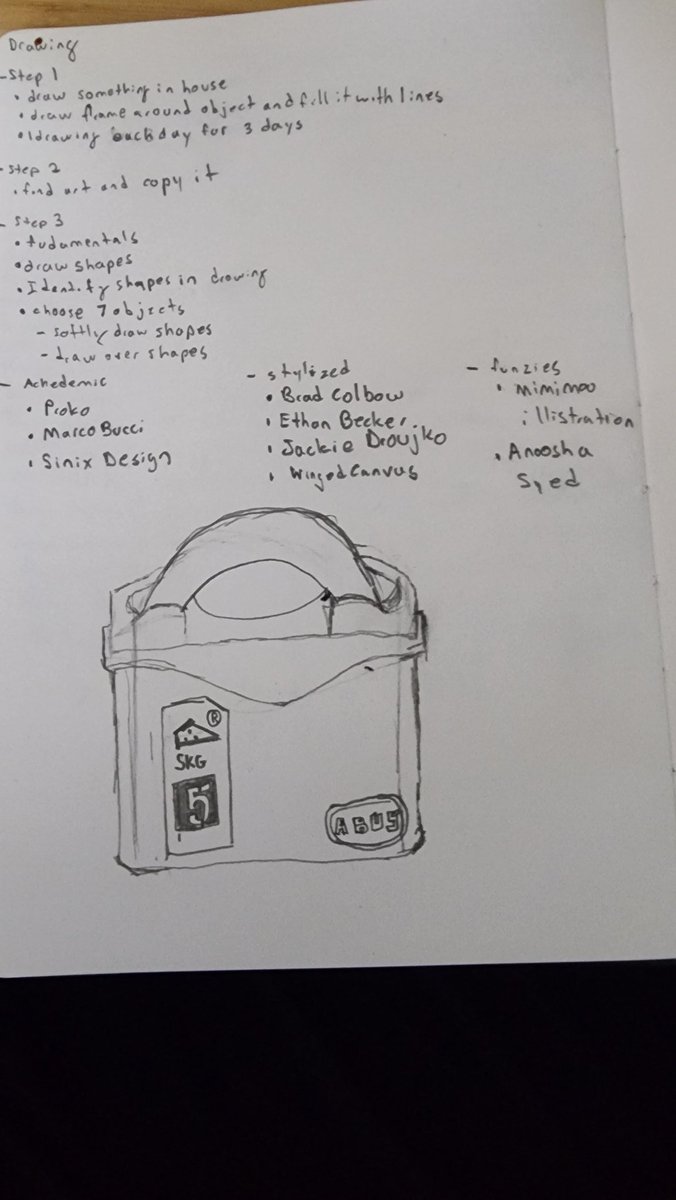 Drawing
- Step 1
• draw something in house
• draw frame around object and fill it with lines
• 1 drawing each day for 3 days
- Step 2
• find art and copy it
- Step 3
• fudamentals
• draw shapes
• Identify shapes in drawing
• choose 7 objects
- softly draw shapes
- draw over shapes
- Achedemic
• Proko
• Marco Bucci
• Sinix Design
- stylized
• Brad Colbow
• Ethan Becker
• Jackie Droujko
• Winged Canvas
- funzies
• mimimoo
illistration
• Anoosha
Syed
®
SKG
5
ABUS